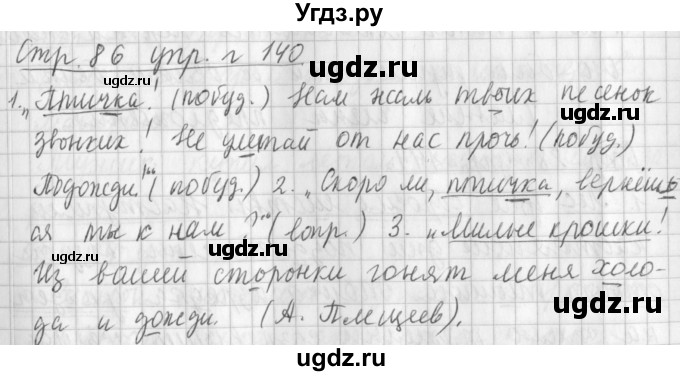 Угдз.ру
Стр. 86 упр. г 140.
ugdz.ru ugdz.ru ugdz.ru
1. „Птичка! (побуд.) Нам жаль твоих песенок
звонких! Не улетай от нас прочь! (побуд.)
ugdz.ru ugdz.ru
Подожди!“ (побуд.) 2. „Скоро ли, птичка, вернёшь-
ся ты к нам?“ (вопр.) 3. „Милые крошки!
ugdz.ru ugdz.ru ugdz.ru
Из вашей сторонки гонят меня холо-
да и дожди. (А. Плещеев).
ugdz.ru ugdz.ru
ugdz.ru